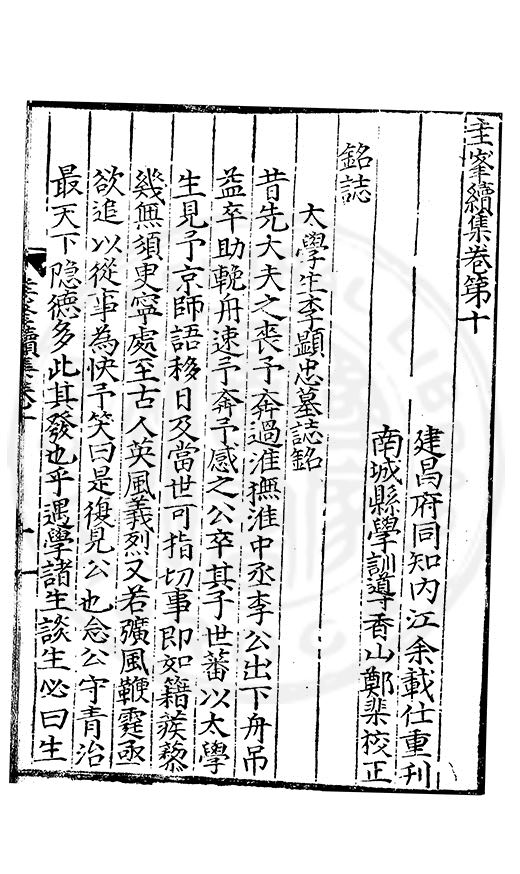 圭峯續集卷第十
建昌府同知內江余載仕重刊
南城縣學訓導香山鄭㭰校正
銘誌
大學生李顯忠墓誌銘
昔先大夫之喪予奔過淮撫淮中丞李公出下舟吊
益卒助輓舟速予奔予感之公卒其子世蕃以太學
生見予京師語移日及當世可指切事即如籍蔟藜
幾無須吏寧處至古人英風義烈又若彍風鞭霆亟
欲追以從事為快予笑曰是復見公也怠公守青治
最天下隐德多此其發也乎遇學諸生談生必曰生